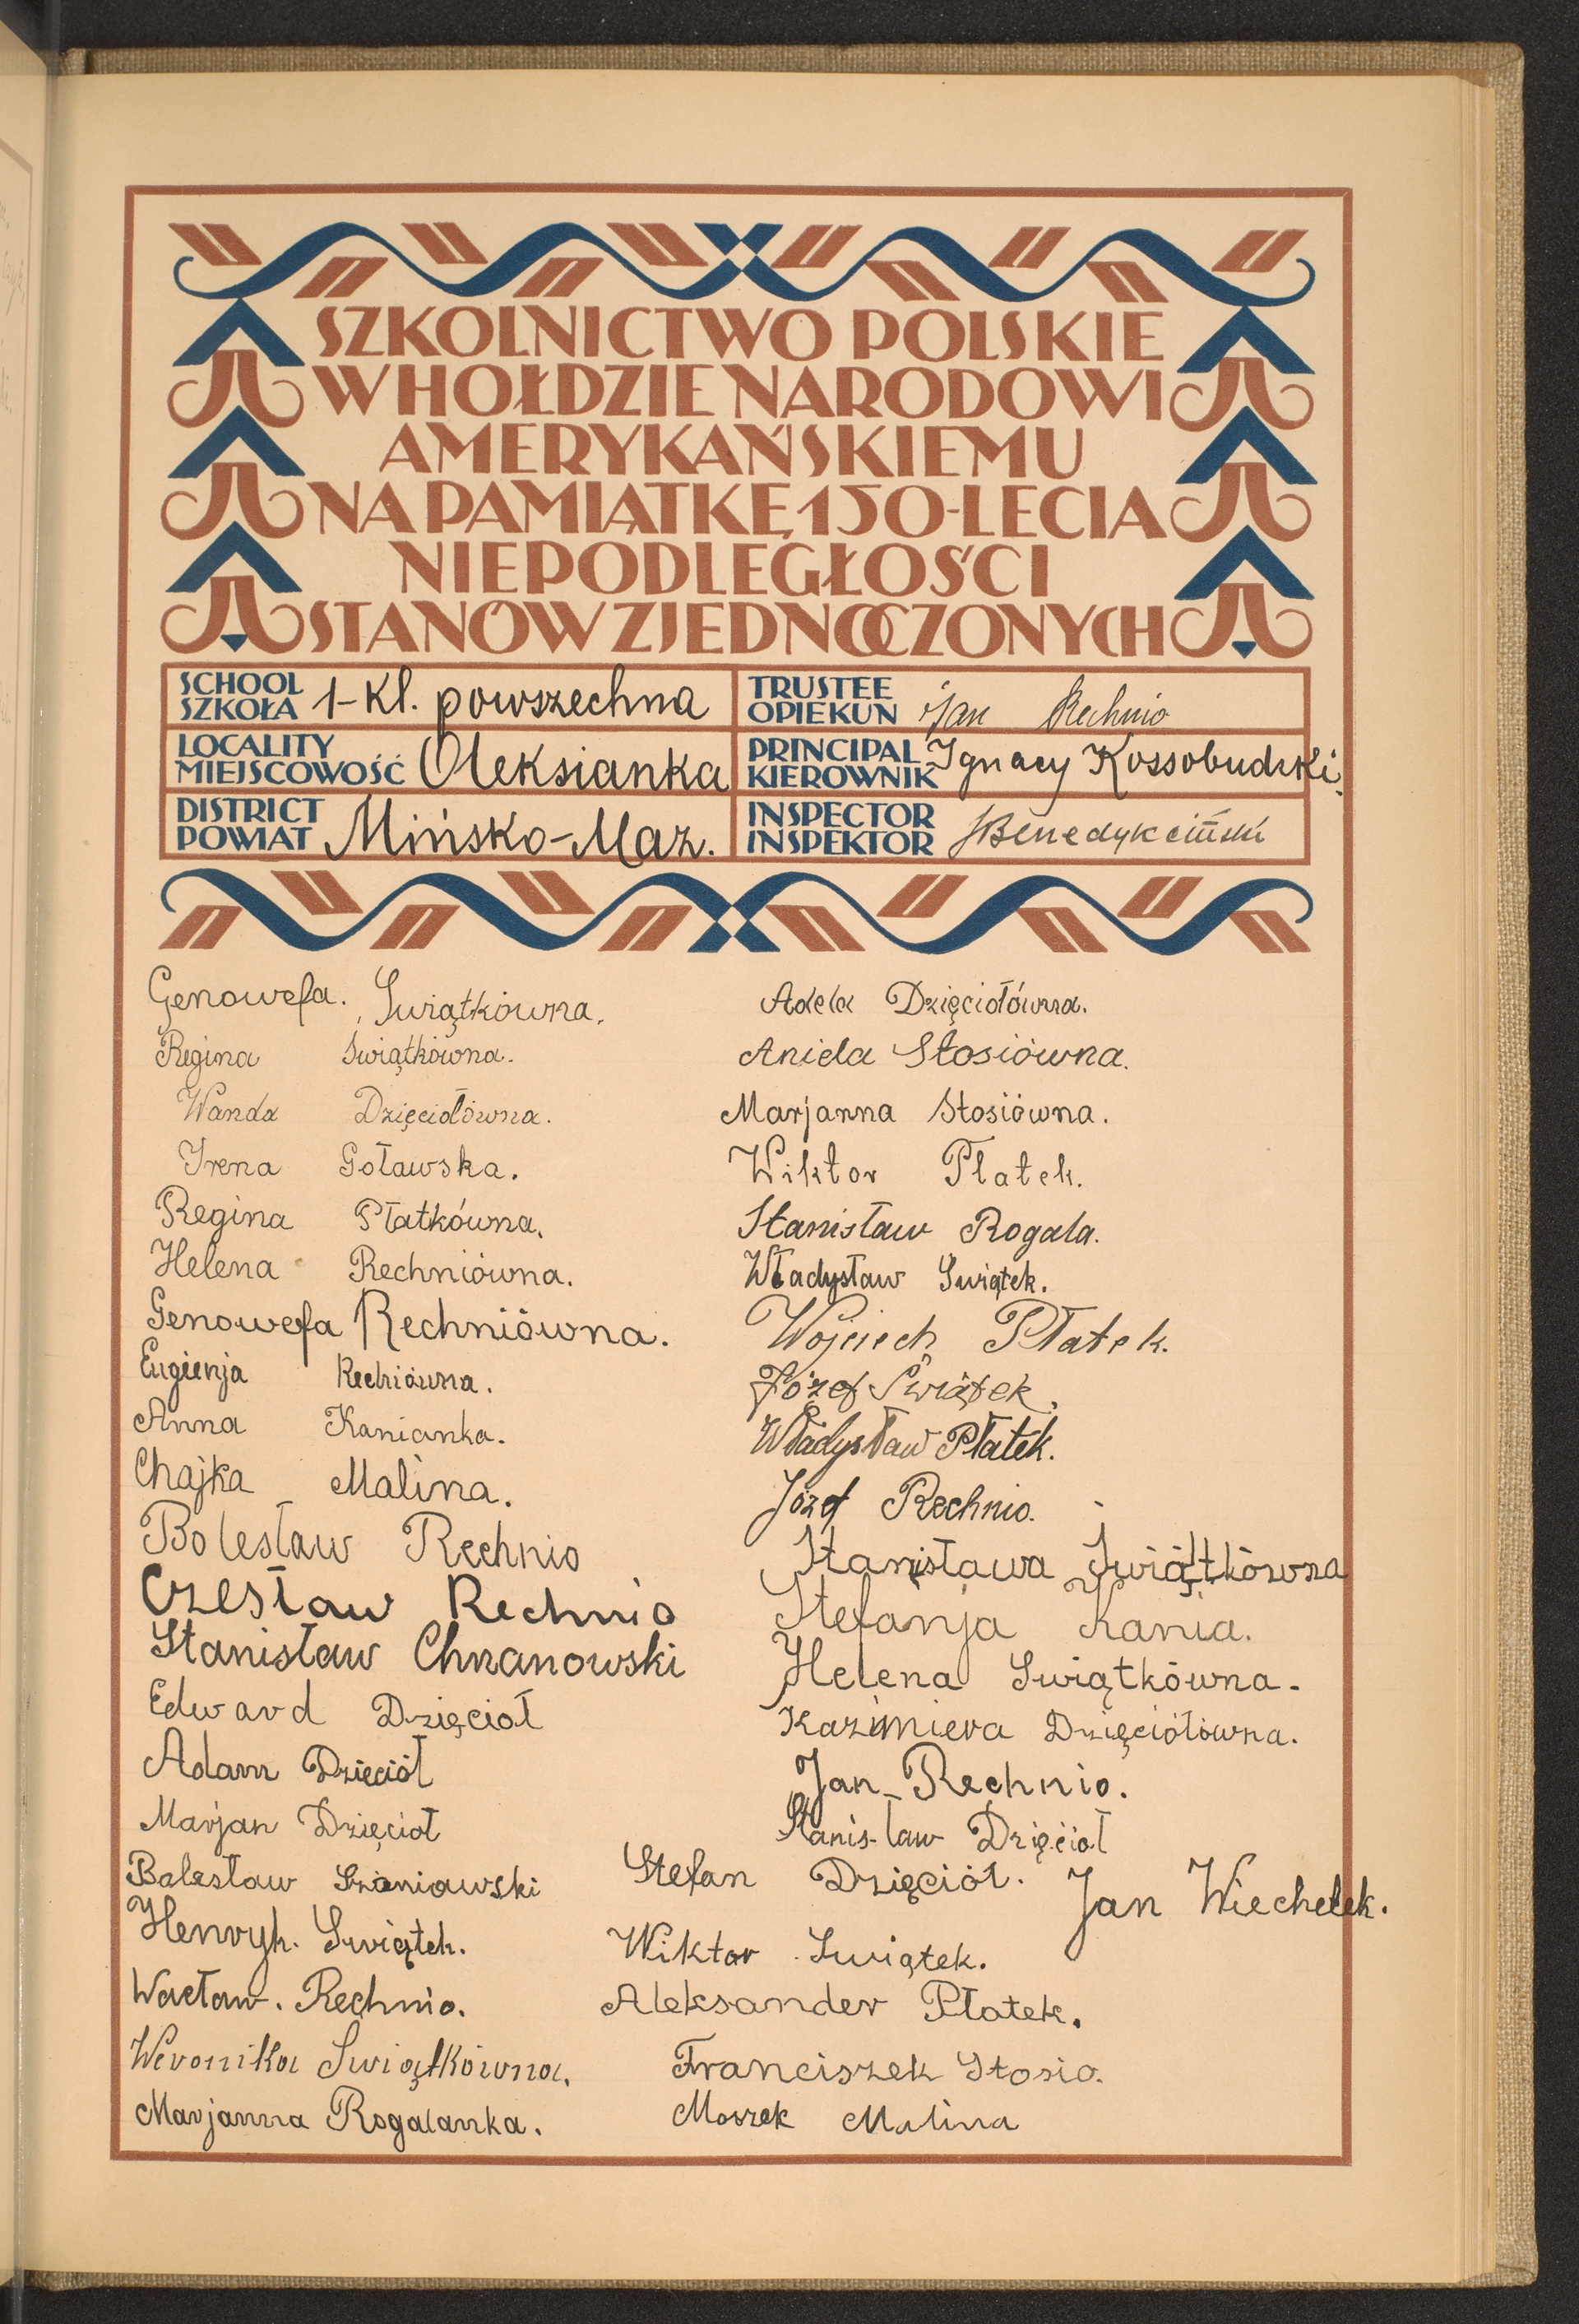 SZKOLNICTWO POLSKIE
W HOŁDZIE NARODOWI
AMERYKAŃSKIEMU
NA PAMIĄTKĘ 150-LECIA
NIEPODLEGŁOŚCI
STANÓW ZJEDNOCZONYCH
SCHOOL
SZKOŁA 1-Kl. powszechna
TRUSTEE
OPIEKUN Jan Rechnio
LOCALITY
MIEJSCOWOŚĆ Oleksianka
PRINCIPAL
KIEROWNIK Ignacy Kossobudzki.
DISTRICT
POWIAT Mińsko-Maz.
INSPECTOR
INSPEKTOR JBenedykciński
Genowefa. Świątkówna.
Regina Świątkówna.
Wanda Dzięciołówna.
Irena Goławska.
Regina Płatkówna.
Helena Rechniówna.
Genowefa Rechniówna.
Eugienja Rechiówna.
Anna Kanianka.
Chajka Malina.
Bolesław Rechnio
Czesław Rechnio
Stanisław Chrzanowski
Edward Dzięcioł
Adam Dzięciół
Marjan Dzięcioł
Bolesław
Henryk. Świątek.
Wacław. Rechnio.
Weronika Świątkówna.
Marjanna Rogalanka.
Adela Dzięciołówna.
Aniela Stosiówna.
Marjanna Stosiówna.
Wiktor Płatek.
Stanisław Rogala.
Władysław Świątek.
Wojciech Płatek.
Józef Świątek.
Władysław Płatek.
Józef Rechnio.
Stanisława Świątkówna
Stefanja Kania.
Helena Świątkówna.
Kazimiera Dzięciółówna.
Jan Rechnio.
Stanis-ław Dzięcioł
Stefan Dzięciół.
Jan Wiechetek.
Wiktor Świątek.
Aleksander Płatek.
Franciszek Stosio.
Moszek Malina